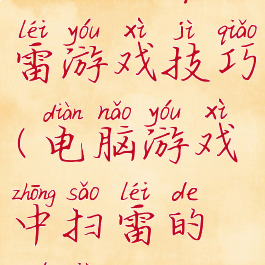 léi yóu xì jì qiǎo
雷游戏技巧
diàn nǎo yóu xì
(电脑游戏
zhōng sǎo léi de
中扫雷的